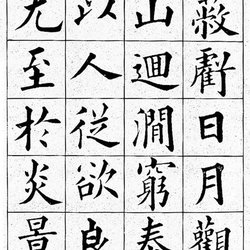 蔽虧日月觀
山迴澗窮泰
以人從欲良
尤至於炎景